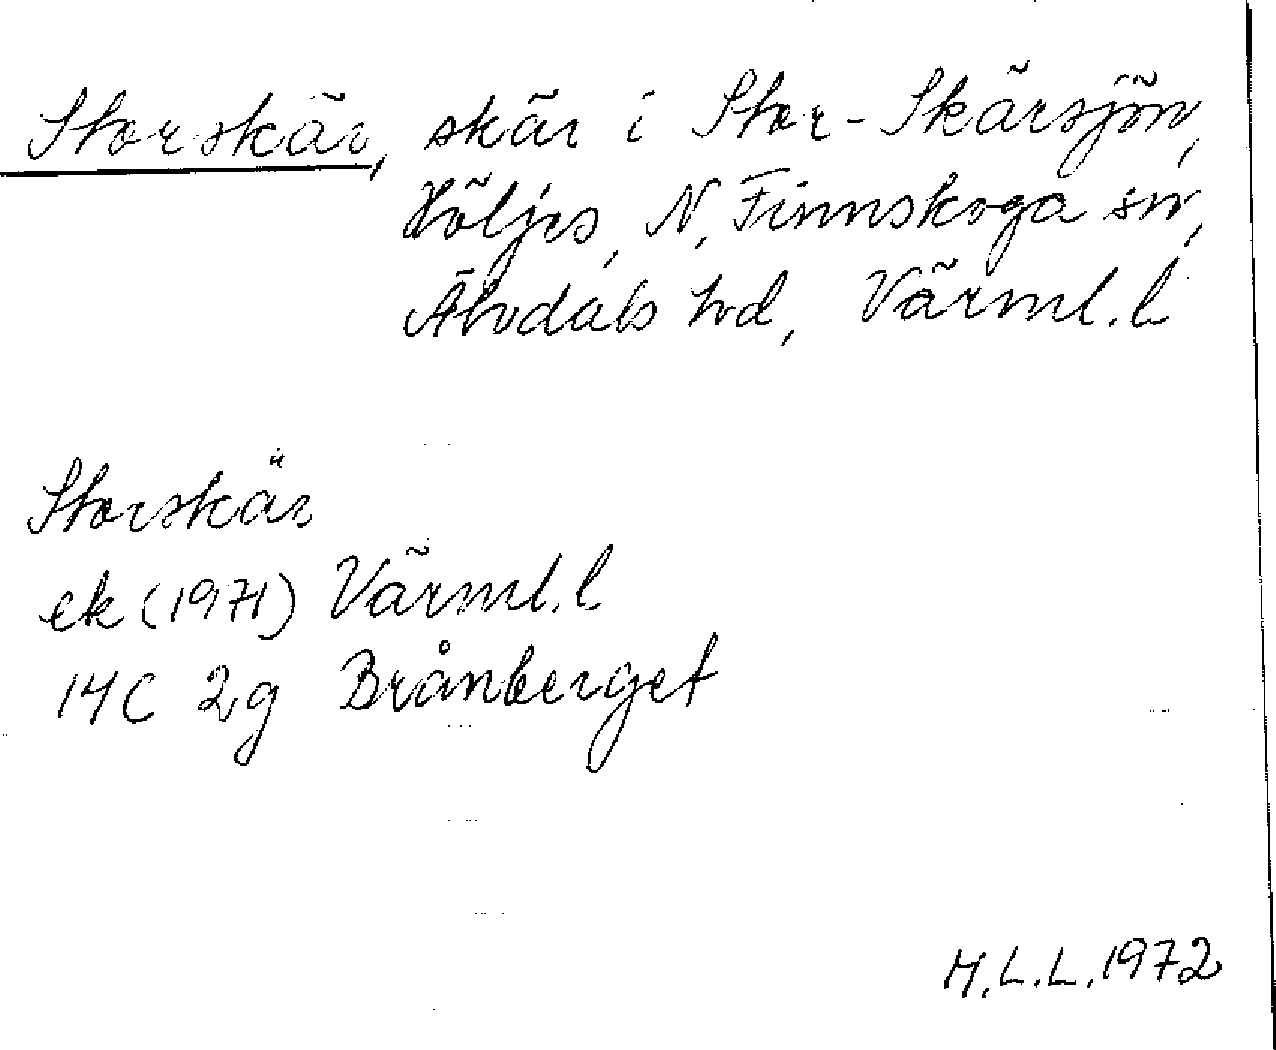 Storskär, skär i Stor-Skärsjön,
Höljes, N. Finnskoga sn,
Älvdals hd, Värml. l
Storskär
ek (1971) Värml. l
14C 2g Brånberget
M.L.L. 1972